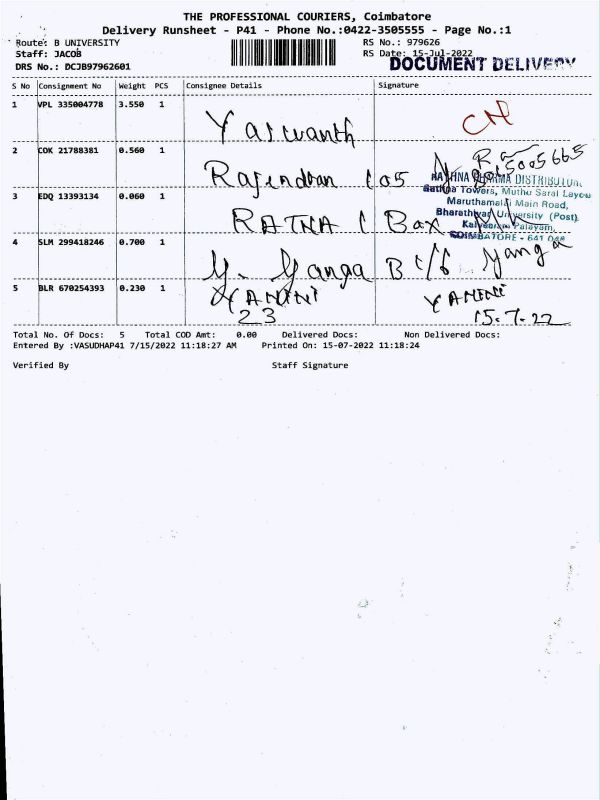 THE PROFESSIONAL COURIERS, Coimbatore
Delivery Runsheet - P41 - Phone No.:0422-3505555 - Page No.:1
Route: B UNIVERSITY RS No.: 979626
Staff: JACOB RS Date: 15-Jul-2022
DRS No.: DCJB97962601 DOCUMENT DELIVERY
S No Consignment No Weight PCS Consignee Details Signature
1 VPL 335004778 3.550 1 Yaswanth
2 COK 21788381 0.560 1 Rajendran
RATHNA PHARMA DISTRIBUTOR
3 EDQ 13393134 0.060 1 RATNA ( Box
Rathna Towers, Muthu Sarai Layou
Maruthamalai Main Road,
Bharathiyar University (Post)
Kalveeram Palayam,
COIMBATORE - 641 046
4 SLM 299418246 0.700 1 Y. Yanga B Yanga
5 BLR 670254393 0.230 1 YAMINI YAMINI
23 15.7.22
Total No. Of Docs: 5 Total COD Amt: 0.00 Delivered Docs: Non Delivered Docs:
Entered By :VASUDHAP41 7/15/2022 11:18:27 AM Printed On: 15-07-2022 11:18:24
Verified By Staff Signature